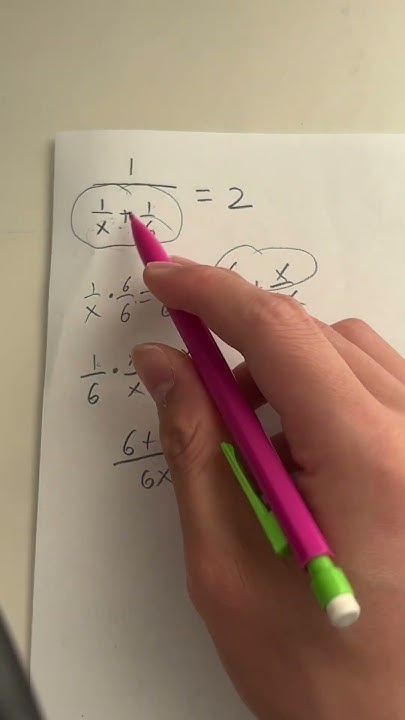 1
1/x + 1/6 = 2
1/x · 6/6 = x/
1/6 · /x
6+
6x